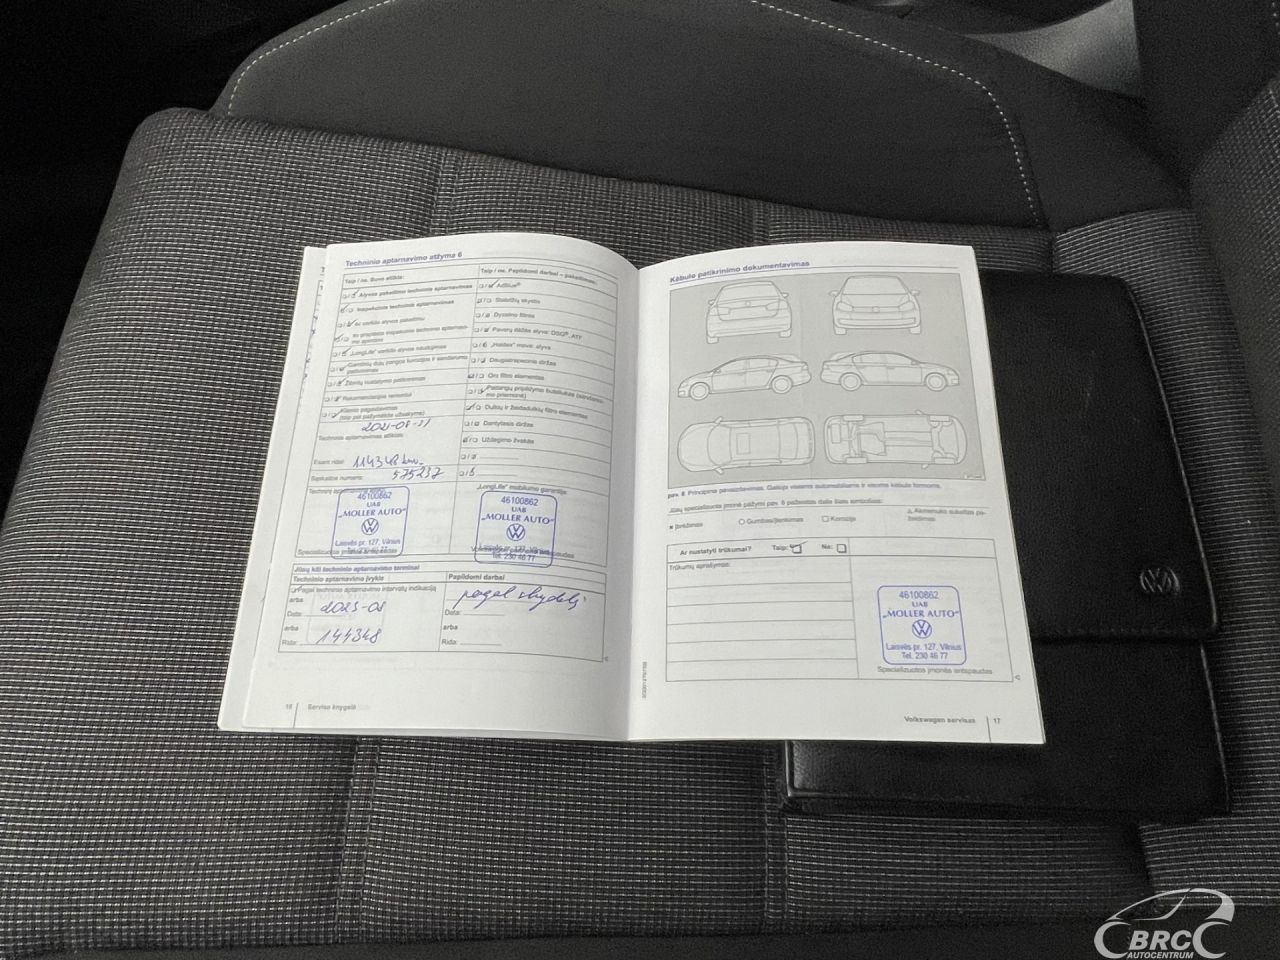 Techninio aptarnavimo atžyma 6
Taip / ne. Buvo atlikta:
Alyvos pakeitimo techninis aptarnavimas
Inspekcinis techninis aptarnavimas
"LongLife" variklio alyvos naudojimas
Rekomendacijos remontui
2021-08-31
Techninis aptarnavimas atliktas:
Esant ridai: 114348 km.
Sąskaitos numeris: 575237
46100862
UAB
„MOLLER AUTO"
Laisvės pr. 127, Vilnius
Tel. 230 46 77
Specializuotos įmonės antspaudas
Taip / ne. Papildomi darbai – pakeitimas:
AdBlue®
Stabdžių skystis
Dyzelino filtras
Pavarų dėžės alyva: DSG®, ATF
„Haldex" mova: alyva
Daugiatrapecinis diržas
Oro filtro elementas
Dulkių ir žiedadulkių filtro elementas
Dantytasis diržas
Uždegimo žvakės
„LongLife" mobilumo garantija:
46100862
UAB
„MOLLER AUTO"
Laisvės pr. 127, Vilnius
Tel. 230 46 77
Jūsų kiti techninio aptarnavimo terminai
Techninio aptarnavimo įvykis
Papildomi darbai
Pagal techninio aptarnavimo intervalų indikaciją
arba
Data: 2023-08
arba
Rida: 144348
pagal
Data:
arba
Rida:
16
Serviso knygelė
Kėbulo patikrinimo dokumentavimas
pav. 6 Principinis pavaizdavimas. Galioja visiems automobiliams ir visoms kėbulo formoms.
Jūsų specializuota įmonė pažymi pav. 6 pažeistas dalis šiais simboliais:
Įbrėžimas
Gumbas/įlenkimas
Korozija
Akmenuko sukeltas pažeidimas
Ar nustatyti trūkumai?
Taip:
Ne:
Trūkumų aprašymas:
46100862
UAB
„MOLLER AUTO"
Laisvės pr. 127, Vilnius
Tel. 230 46 77
Specializuotos įmonės antspaudas
Volkswagen servisas
17
BRC
AUTOCENTRUM